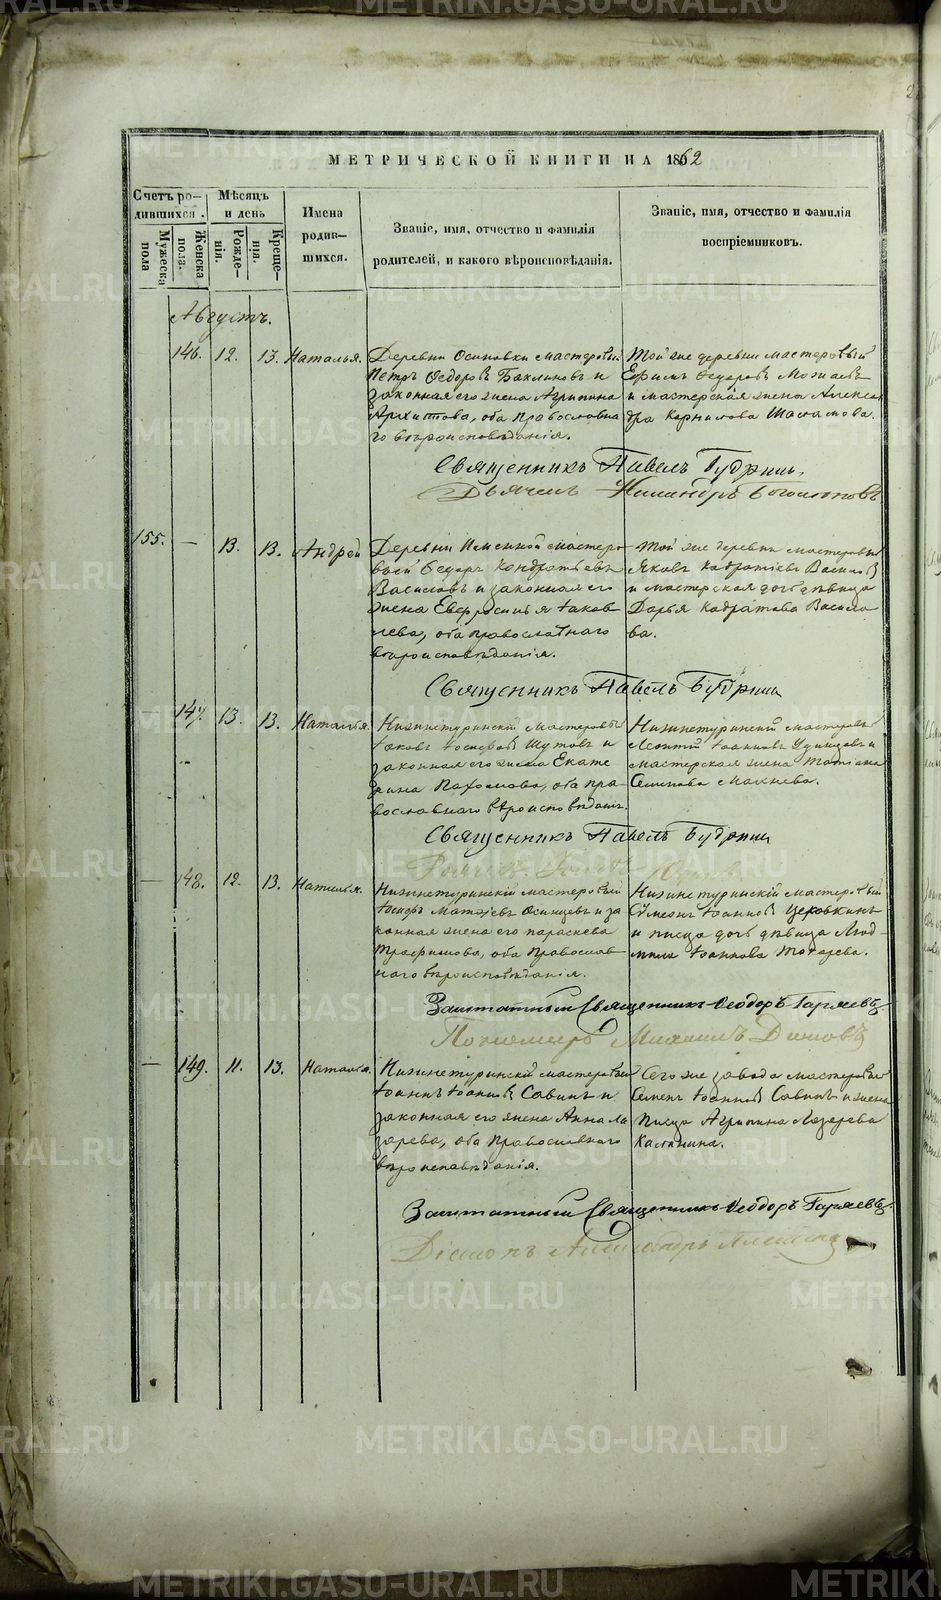 МЕТРИЧЕСКОЙ КНИГИ НА 1862
Счетъ ро-
дившихся.
Мѣсяцъ
и день
Мужеска
пола
Женска
пола.
Рожде-
нія.
Креще-
нія.
Имена
родив-
шихся.
Званіе, имя, отчество и фамилія
родителей, и какого вѣроисповѣданія.
Званіе, имя, отчество и фамилія
воспріемниковъ.
Августъ.
146. 12. 13. Наталья.
Деревни Осиновки мастеровый
Петръ Ѳедоровъ Баклановъ и
законная его жена Агрипина
оба православна
го вѣроисповѣданія.
Той же деревни мастеровый
Ефимъ Ѳедоровъ
и мастерская жена Алексан
дра Корнилова
Священникъ Павелъ Будринъ.
Дьячекъ Никандръ Богомоловъ
155. — 13. 13. Андрей
Деревни Именной мастеро
вой Ѳедоръ Кондратьевъ
Василовъ и законная его
жена Евфросинья Іаков
лева, оба православнаго
вѣроисповѣданія.
Той же деревни мастеровый
Яковъ
и мастерская дочь дѣвица
Дарья Васило
ва.
Священникъ Павелъ Будринъ
— 147. 13. 13. Наталья.
Нижнетуринскій мастеровый
Іаковъ Іосифовъ Шутовъ и
законная его жена Екате
рина Пахомова, оба пра
вославнаго вѣроисповѣдан.
Нижнетуринскій мастеровый
Леонтій Іоанновъ и
мастерская жена Татіана
Семенова
Священникъ Павелъ Будринъ
— 148. 12. 13. Наталья.
Нижнетуринскій мастеровый
Іосифъ Матѳіевъ Осинцевъ и за
конная жена его Параскева
Трофимова, оба православ
наго вѣроисповѣданія.
Нижнетуринскій мастеровый
Сумеонъ Іоанновъ Церковкинъ
и писца дочь дѣвица Люд
мила Іоаннова Токарева.
Заштатный Священникъ Ѳеодоръ Гаряевъ
Пономарь Михаилъ
— 149. 11. 13. Наталья.
Нижнетуринскій мастеровый
Іоаннъ Іоанновъ Савинъ и
законная его жена Анна Ла
зарева, оба православнаго
вѣроисповѣданія.
Сего же завода мастеровый
Семенъ Іоанновъ Савинъ и жена
писца Агрипина Лазарева
Калинина.
Заштатный Священникъ Ѳеодоръ Гаряевъ
Діаконъ Александръ
METRIKI.GASO-URAL.RU